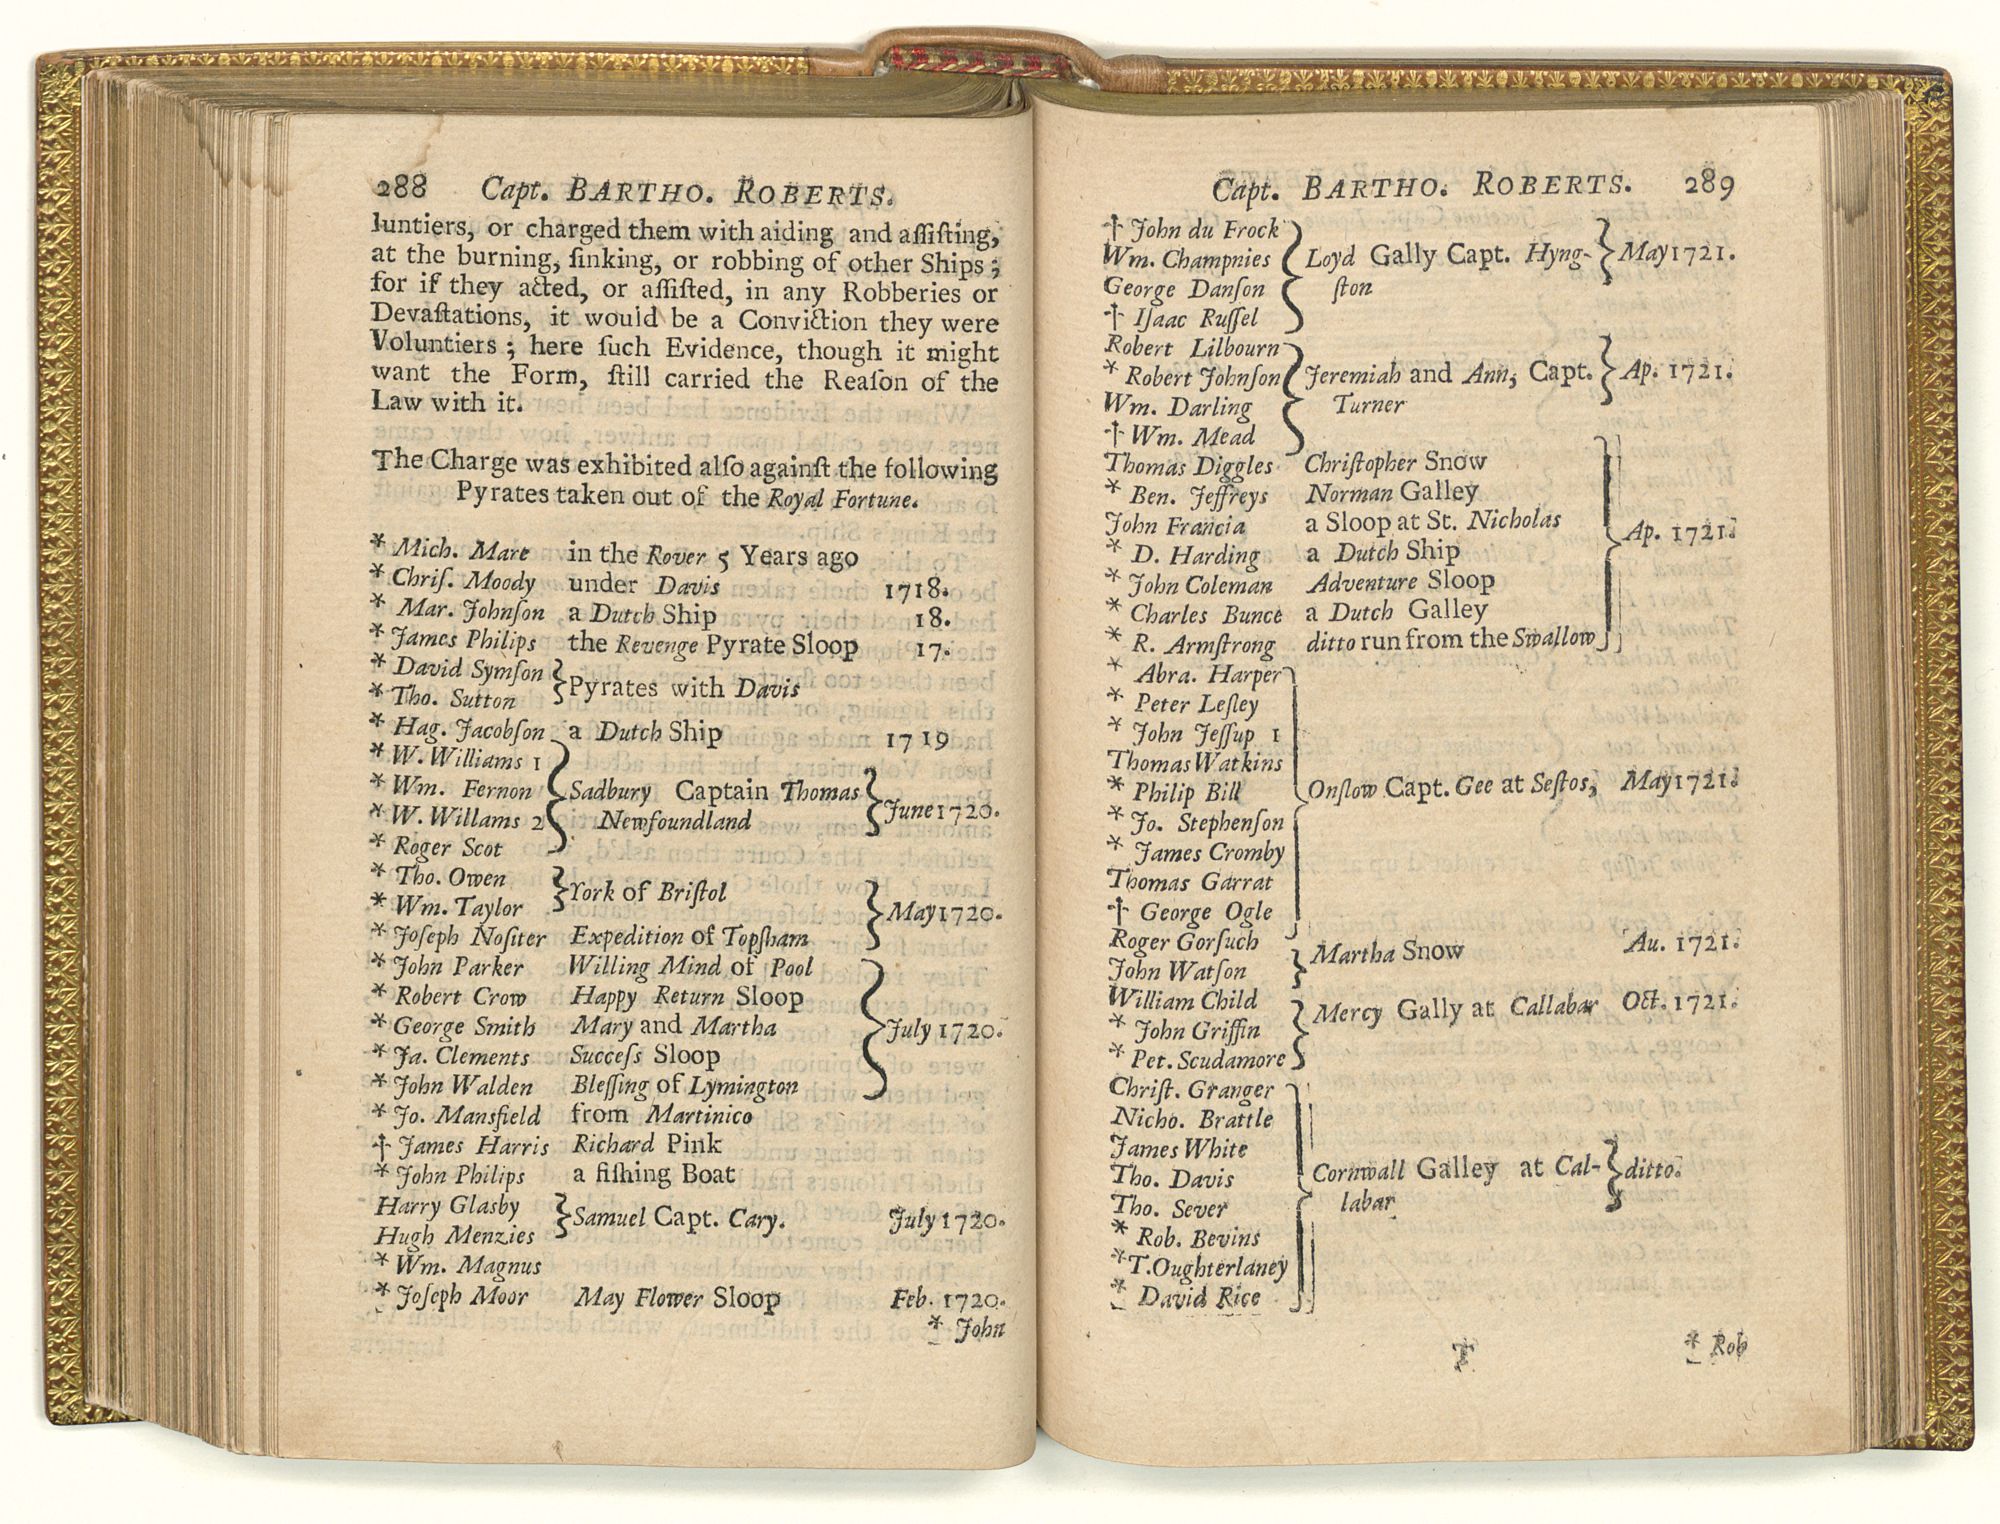 288 Capt. BARTHO. ROBERTS.
luntiers, or charged them with aiding and aſſiſting,
at the burning, ſinking, or robbing of other Ships;
for if they acted, or aſſiſted, in any Robberies or
Devaſtations, it would be a Conviction they were
Voluntiers; here ſuch Evidence, though it might
want the Form, ſtill carried the Reaſon of the
Law with it.
The Charge was exhibited alſo againſt the following
Pyrates taken out of the Royal Fortune.
* Mich. Mare in the Rover 5 Years ago
* Chriſ. Moody under Davis 1718.
* Mar. Johnſon a Dutch Ship 18.
* James Philips the Revenge Pyrate Sloop 17.
* David Symſon } Pyrates with Davis
* Tho. Sutton
* Hag. Jacobſon a Dutch Ship 1719
* W. Williams 1
* Wm. Fernon } Sadbury Captain Thomas } June 1720.
* W. Willams 2 Newfoundland
* Roger Scot
* Tho. Owen } York of Briſtol
* Wm. Taylor } May 1720.
* Joſeph Noſiter Expedition of Topſham
* John Parker Willing Mind of Pool
* Robert Crow Happy Return Sloop
* George Smith Mary and Martha } July 1720.
* Ja. Clements Succeſs Sloop
* John Walden Bleſſing of Lymington
* Jo. Mansfield from Martinico
† James Harris Richard Pink
* John Philips a fiſhing Boat
Harry Glasby } Samuel Capt. Cary. July 1720.
Hugh Menzies
* Wm. Magnus
* Joſeph Moor May Flower Sloop Feb. 1720.
* John
Capt. BARTHO. ROBERTS. 289
† John du Frock
Wm. Champnies } Loyd Gally Capt. Hyng- } May 1721.
George Danſon ſton
† Iſaac Ruſſel
Robert Lilbourn
* Robert Johnſon } Jeremiah and Ann, Capt. } Ap. 1721.
Wm. Darling Turner
† Wm. Mead
Thomas Diggles Chriſtopher Snow
* Ben. Jeffreys Norman Galley
John Francia a Sloop at St. Nicholas
* D. Harding a Dutch Ship } Ap. 1721.
* John Coleman Adventure Sloop
* Charles Bunce a Dutch Galley
* R. Armſtrong ditto run from the Swallow
* Abra. Harper
* Peter Leſley
* John Jeſſup 1
Thomas Watkins
* Philip Bill } Onſlow Capt. Gee at Seſtos, May 1721.
* Jo. Stephenſon
* James Cromby
Thomas Garrat
† George Ogle
Roger Gorſuch } Martha Snow Au. 1721.
John Watſon
William Child
* John Griffin } Mercy Gally at Callabar Oct. 1721.
* Pet. Scudamore
Chriſt. Granger
Nicho. Brattle
James White
Tho. Davis } Cornwall Galley at Cal- } ditto.
Tho. Sever labar
* Rob. Bevins
* T. Oughterlaney
* David Rice
T * Rob